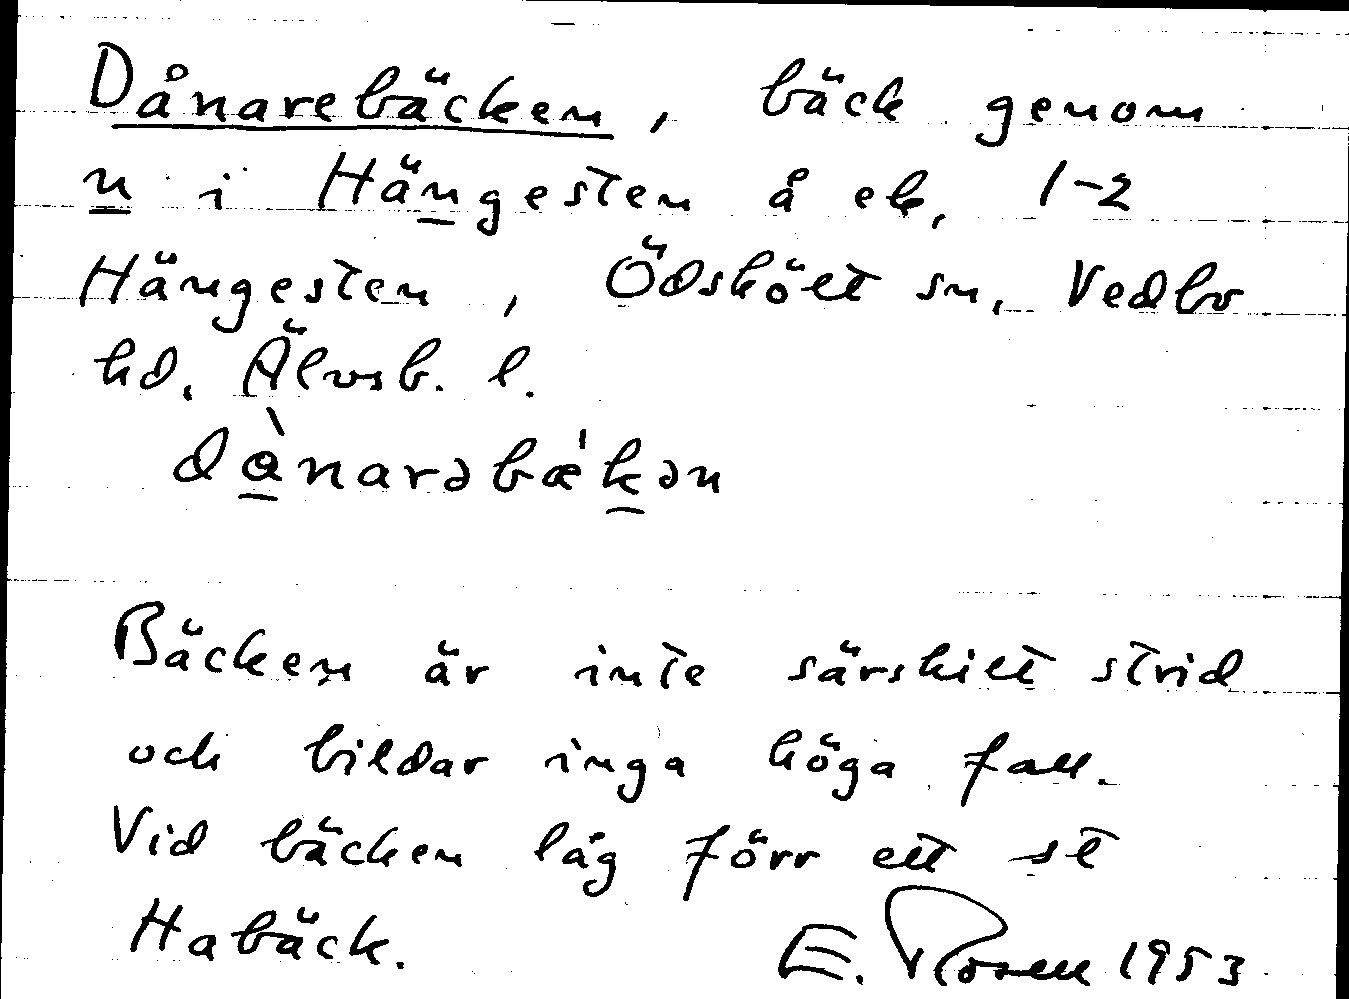 Dånarebäcken, bäck genom
n i Hängesten å ek, 1-2
Hängesten, Ödskölt sn, Vedbo
hd, Älvsb. l.
dànarəbæ'kən
Bäcken är inte särskilt strid
och bildar inga höga fall.
Vid bäcken låg förr ett st
Habäck. E. Rosell 1953